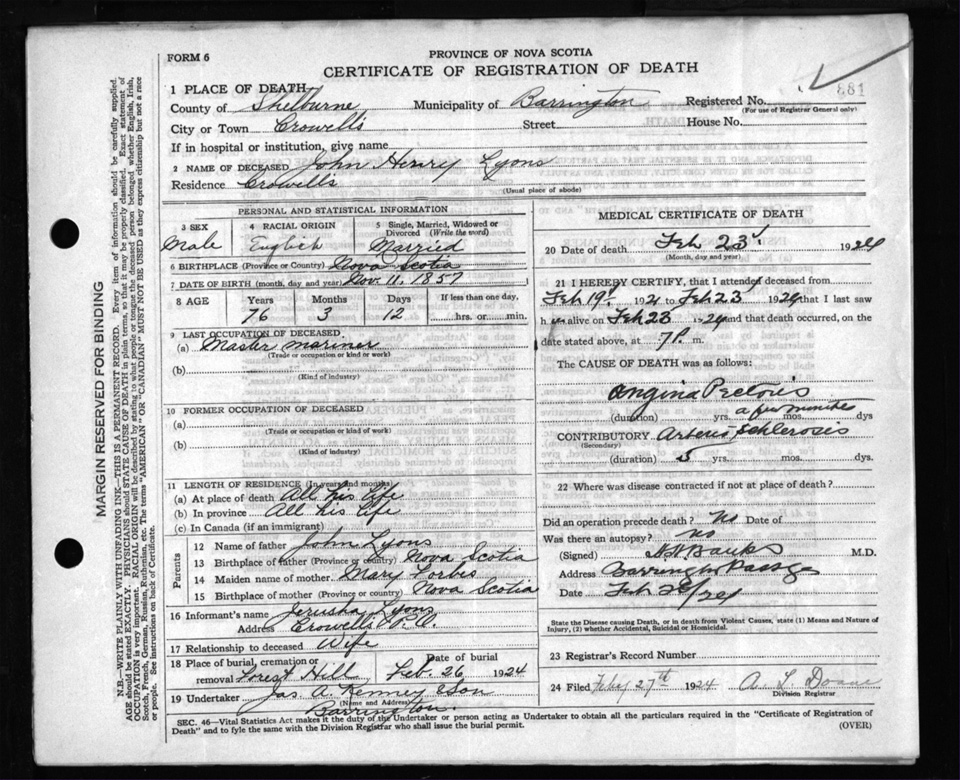 FORM 6
PROVINCE OF NOVA SCOTIA
CERTIFICATE OF REGISTRATION OF DEATH
1 PLACE OF DEATH
County of Shelburne Municipality of Barrington Registered No. 381
(For use of Registrar General only)
City or Town Crowell's Street House No.
If in hospital or institution, give name
2 NAME OF DECEASED John Henry Lyons
Residence Crowell's
(Usual place of abode)
PERSONAL AND STATISTICAL INFORMATION
3 SEX 4 RACIAL ORIGIN 5 Single, Married, Widowed or Divorced (Write the word)
Male English Married
6 BIRTHPLACE (Province or Country) Nova Scotia
7 DATE OF BIRTH (month, day and year) Nov. 11. 1857
8 AGE Years Months Days If less than one day,
76 3 12 hrs. or min.
9 LAST OCCUPATION OF DECEASED
(a) Master mariner
(Trade or occupation or kind or work)
(b)
(Kind of industry)
10 FORMER OCCUPATION OF DECEASED
(a)
(Trade or occupation or kind of work)
(b)
(Kind of industry)
11 LENGTH OF RESIDENCE (In years and months)
(a) At place of death All his life
(b) In province All his life
(c) In Canada (if an immigrant)
Parents
12 Name of father John Lyons
13 Birthplace of father (Province or country) Nova Scotia
14 Maiden name of mother Mary Forbis
15 Birthplace of mother (Province or country) Nova Scotia
16 Informant's name Jerusha Lyons
Address Crowell's P.O.
17 Relationship to deceased Wife
18 Place of burial, cremation or removal Forest Hill Date of burial Feb. 26 1924
19 Undertaker Jas. A. Kenney & Son
(Name and Address)
Barrington.
MEDICAL CERTIFICATE OF DEATH
20 Date of death Feb 23 1924
(Month, day and year)
21 I HEREBY CERTIFY, that I attended deceased from
Feb 19 1921 to Feb 23 1924 that I last saw
h alive on Feb 23 1924 and that death occurred, on
date stated above, at 7 P. m.
The CAUSE OF DEATH was as follows:
Angina Pectoris
a few minutes
(duration) yrs. mos. dys
CONTRIBUTORY Arterio Schlerosis
(Secondary)
(duration) 5 yrs. mos. dys.
22 Where was disease contracted if not at place of death?
Did an operation precede death? No Date of
Was there an autopsy? no
(Signed) Banks M.D.
Address Barrington Passage
Date Feb 26/24
State the Disease causing Death, or in death from Violent Causes, state (1) Means and Nature of Injury, (2) whether Accidental, Suicidal or Homicidal.
23 Registrar's Record Number
24 Filed Feby 27th 1924 A L Doane
Division Registrar
SEC. 46—Vital Statistics Act makes it the duty of the Undertaker or person acting as Undertaker to obtain all the particulars required in the "Certificate of Registration of
Death" and to fyle the same with the Division Registrar who shall issue the burial permit. (OVER)
MARGIN RESERVED FOR BINDING
N.B.—WRITE PLAINLY WITH UNFADING INK—THIS IS A PERMANENT RECORD. Every item of information should be carefully supplied.
AGE should be stated EXACTLY. PHYSICIANS should STATE CAUSE OF DEATH in plain terms, so that it may be properly classified. Exact statement of
OCCUPATION is very important. RACIAL ORIGIN will be described by stating to what people or tongue the deceased person belonged whether English, Irish,
Scotch, French, German, Russian, Ruthenian, etc. The terms "AMERICAN" OR "CANADIAN" MUST NOT BE USED as they express citizenship but not a race
or people. See instructions on back of Certificate.